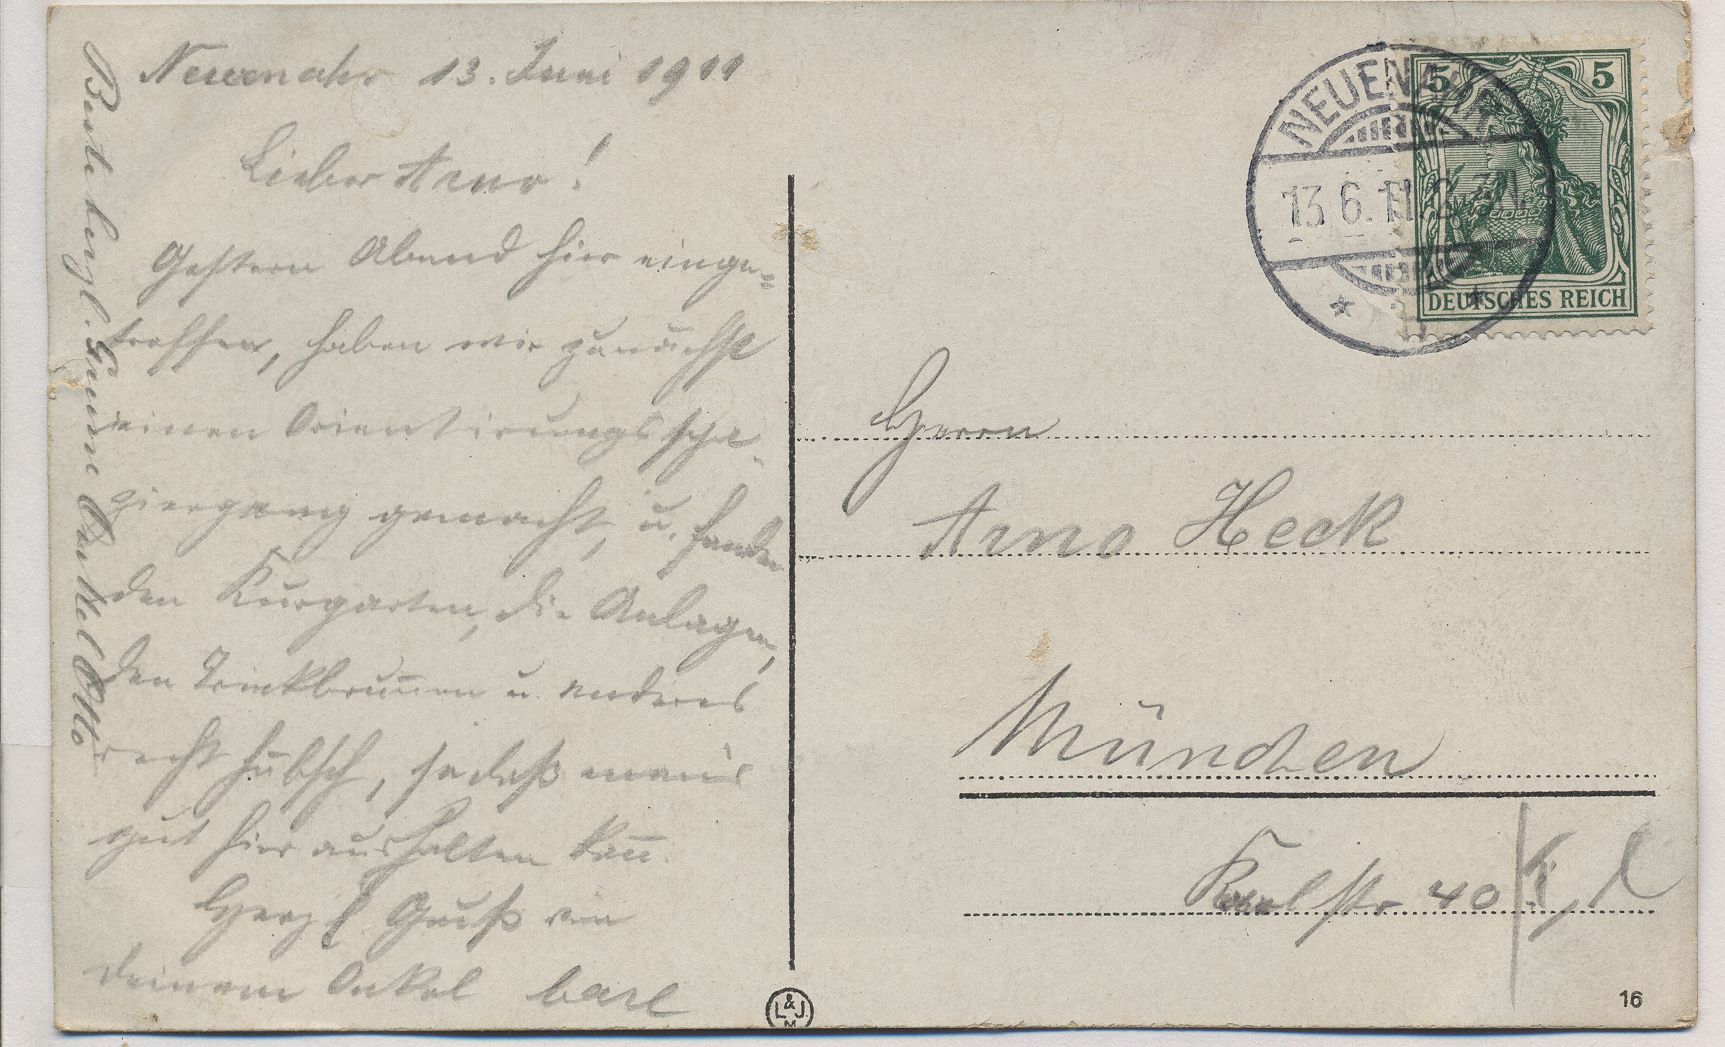 Neuenahr 13. Juni 1911
Lieber Arno!
Gestern Abend hier einge-
troffen, haben wir zunächst
einen Orientirungsspa-
ziergang gemacht, u. fanden
den Kurgarten, die Anlagen,
den Trinkbrunnen u. anderes
recht hübsch, so daß man's
gut hier aushalten kann.
Herzl Gruß von
deinem Onkel Carl
Beste herzl. Grüße Onkel Otto
NEUENAHR
13.6.11
5 5
DEUTSCHES REICH
Herrn
Arno Heck
München
Karlstr 40
L & J
M
16